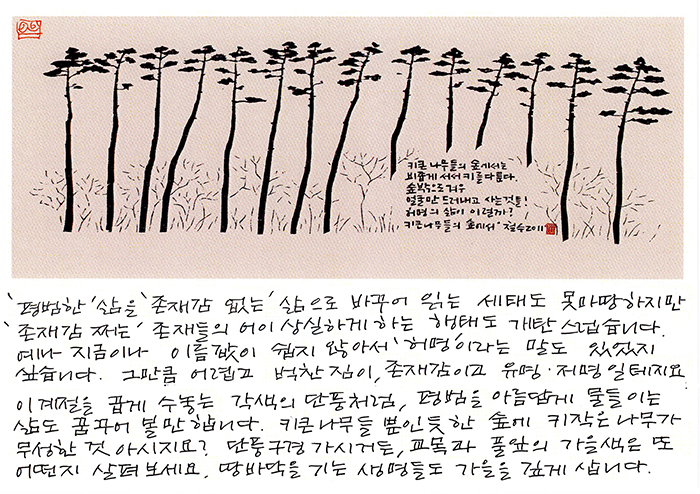 키큰 나무들의 숲에서는
비좁게 서서 키를 다툰다.
숲 밖으로 겨우
얼굴만 드러내고 사는 것들!
허명의 삶이 이럴까?
키큰나무들의 숲에서·철수2011
'평범한' 삶을 '존재감 없는' 삶으로 바꾸어 읽는 세태도 못마땅하지만
'존재감 쩌는' 존재들의 어이 상실하게 하는 행태도 개탄스럽습니다.
예나 지금이나 이름값이 쉽지 않아서 '허명'이라는 말도 있었지
싶습니다. 그만큼 어렵고 벅찬 짐이, 존재감이고 유명·저명일테지요.
이 계절을 곱게 수놓는 각색의 단풍처럼, 평범을 아름답게 물들이는
삶도 꿈꾸어 볼만 합니다. 키큰나무들 뿐인듯한 숲에 키작은 나무가
무성한 것 아시지요? 단풍구경 가시거든, 교목과 풀잎의 가을색은 또
어떤지 살펴보세요. 땅바닥을 기는 생명들도 가을을 깊게 삽니다.